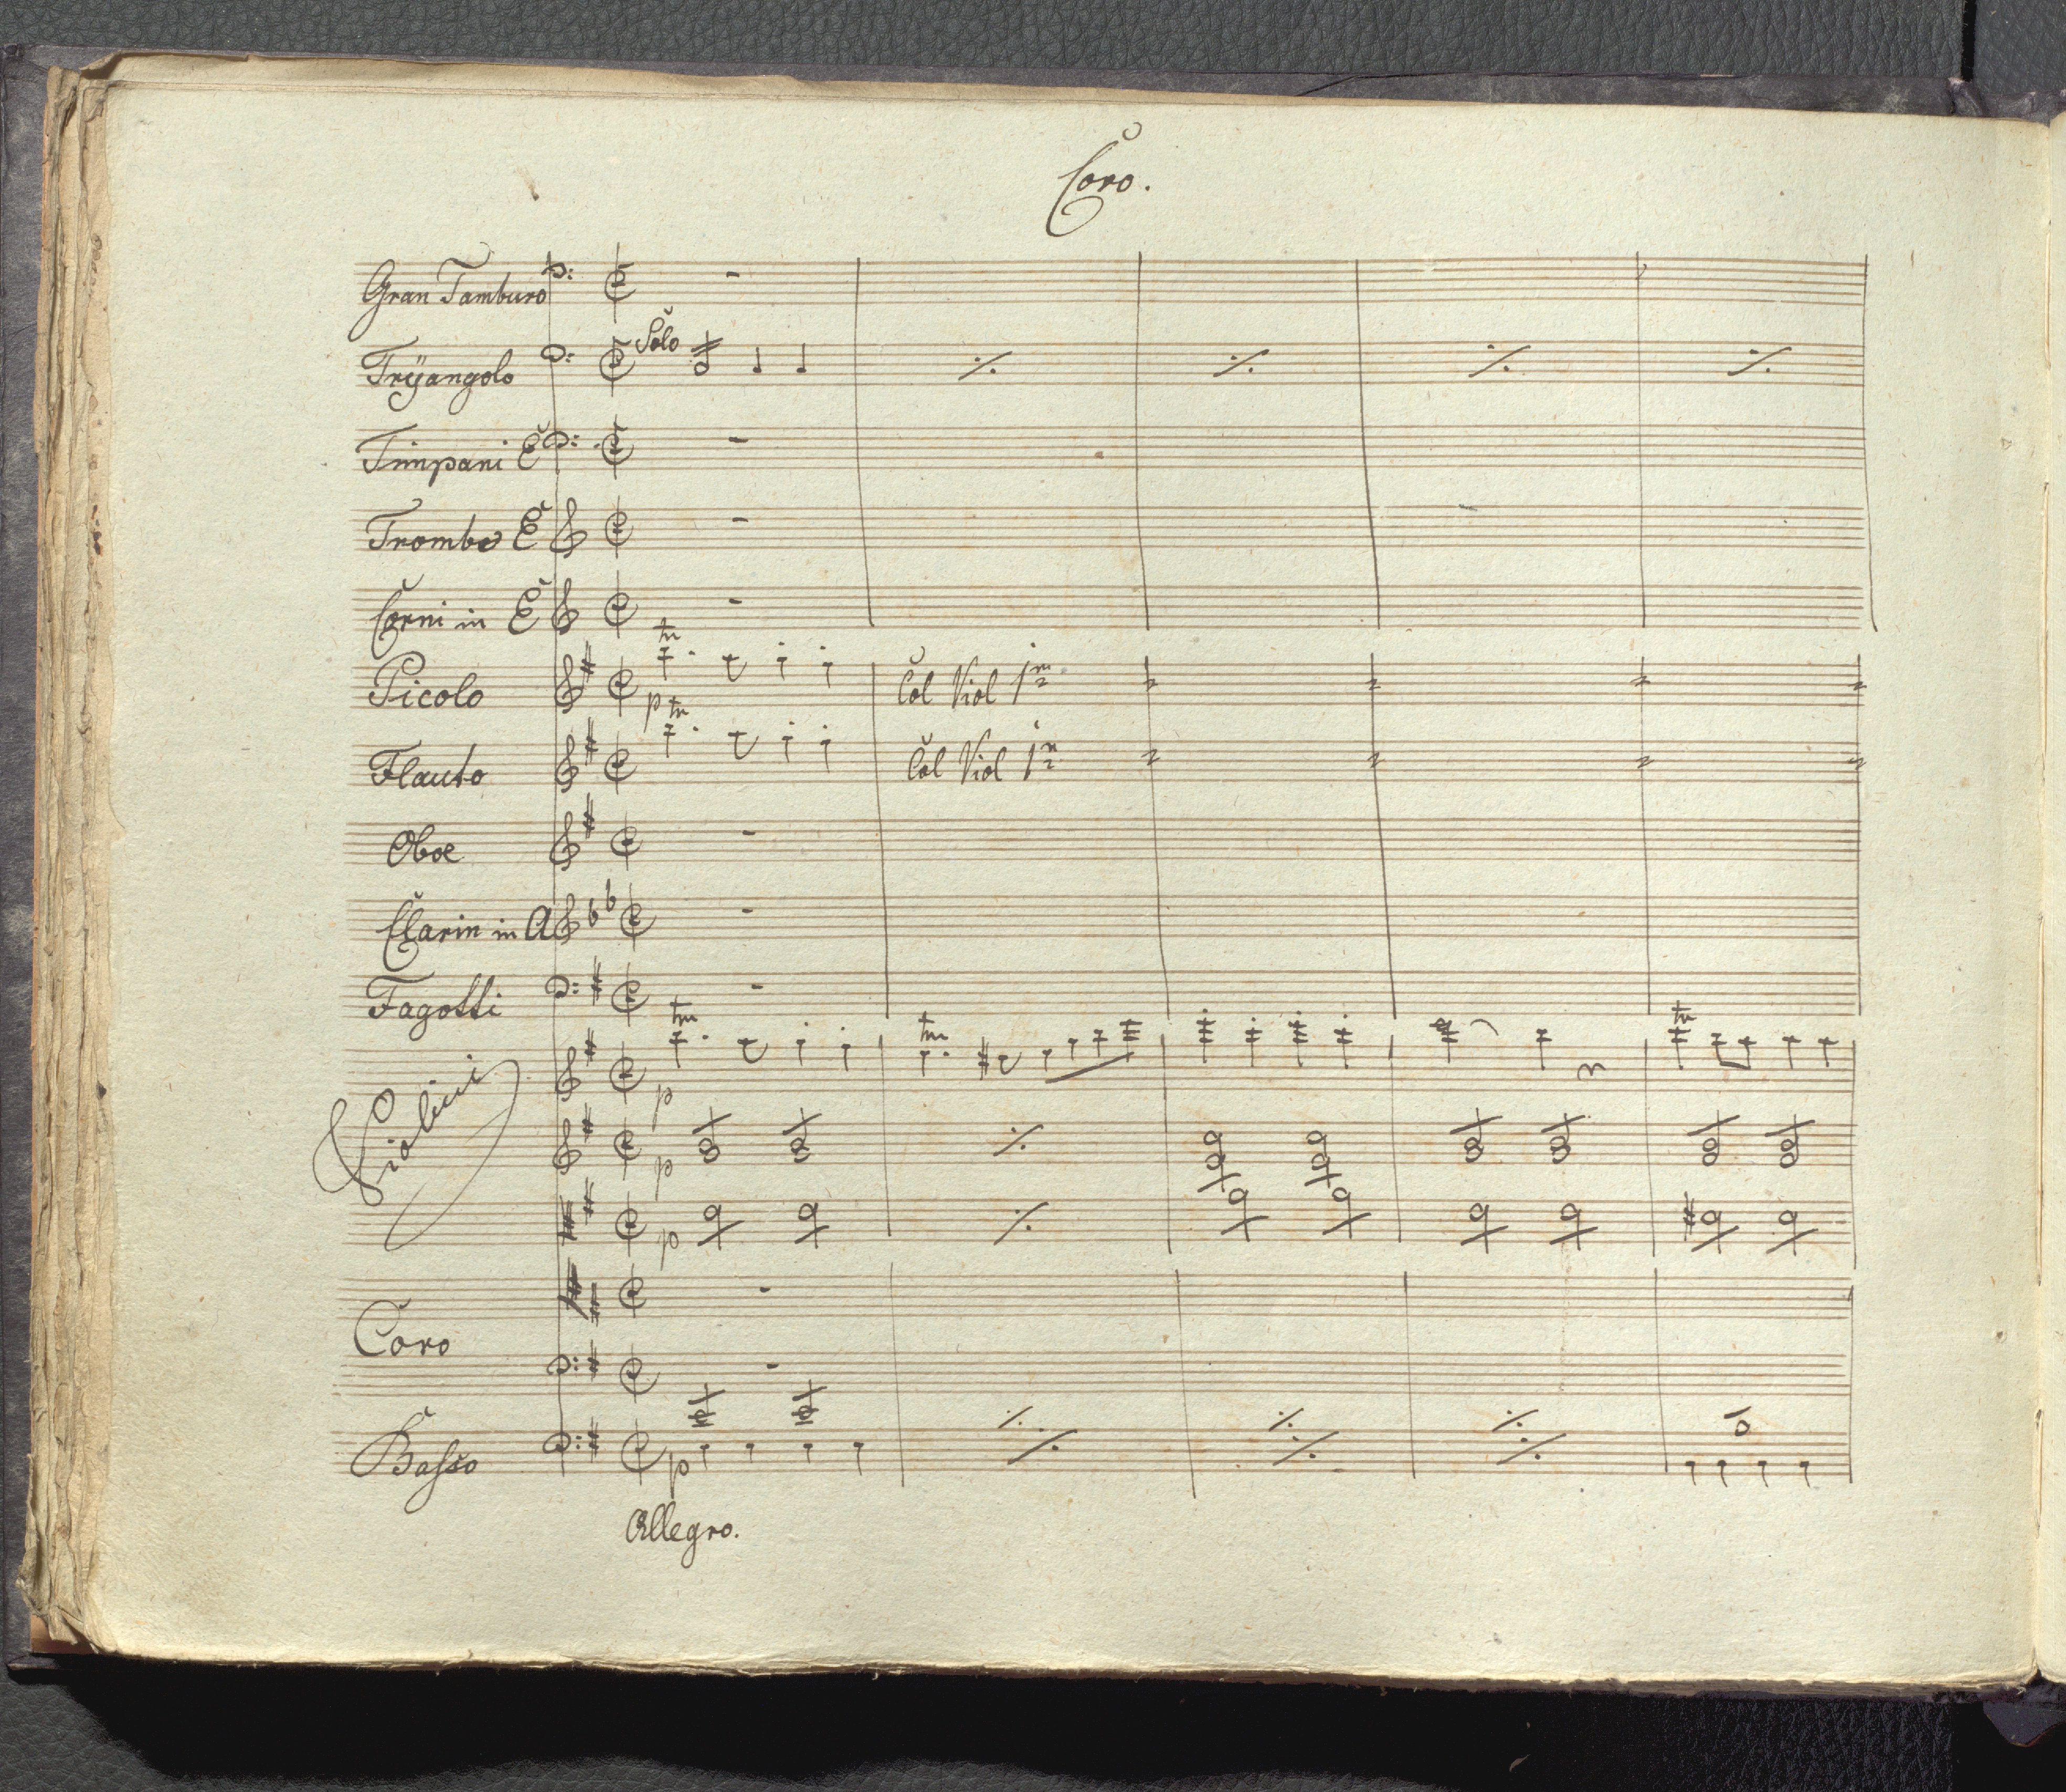 Coro.
Gran Tamburo
Solo
Trÿangolo
Timpani E
Trombe E
Corni in E
tr
Picolo
Col Viol 1mo
p
tr
Flauto
Col Viol 1mo
Oboe
Clarin in A
Fagotti
tr tr tr
Violini
p
p
p
Coro
Basso
p
Allegro.